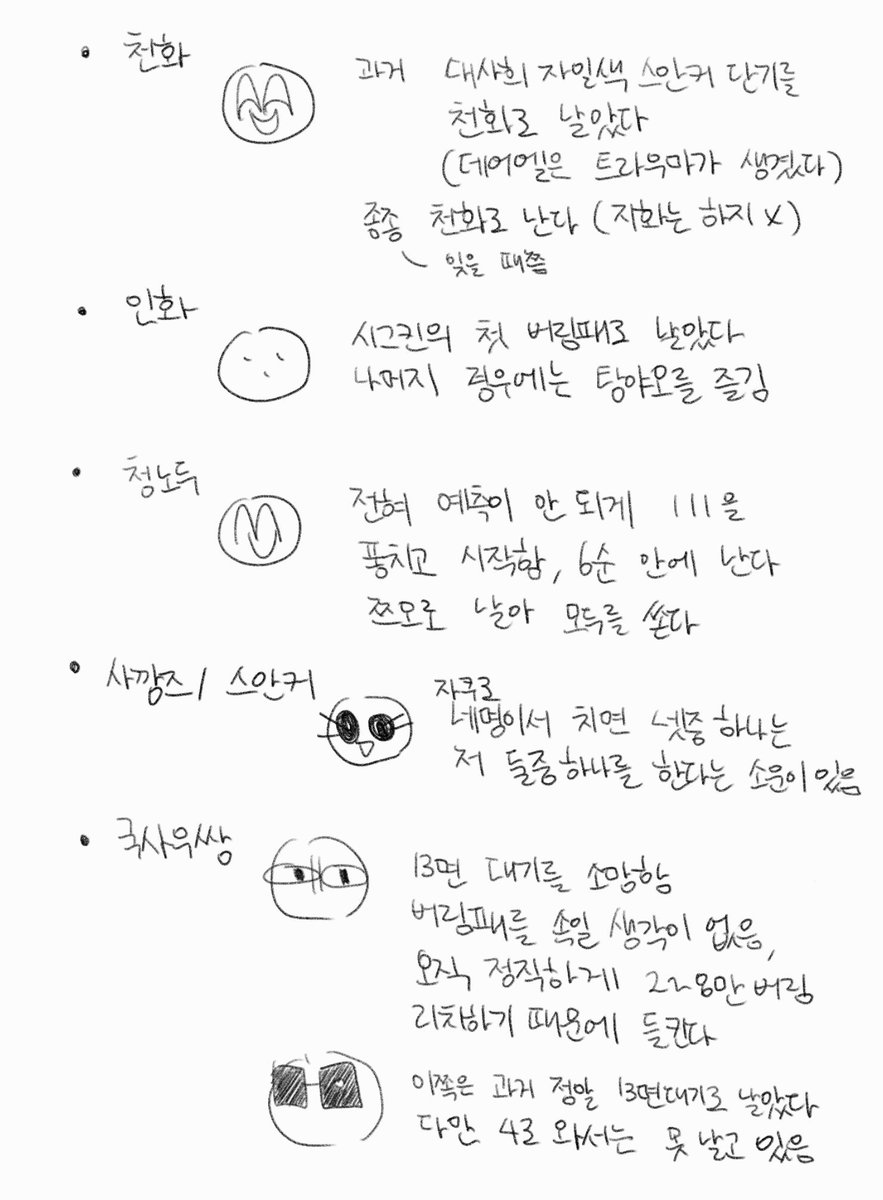 천화
과거 대사희 자일색 스안커 단기를
천화로 날았다
(데어엘은 트라우마가 생겼다)
종종 천화로 난다 (지화는 하지 X)
잊을 때쯤
인화
시그킨의 첫 버림패로 날았다
나머지 경우에는 탕야오를 즐김
청노두
전혀 예측이 안 되게 111을
퐁치고 시작함, 6순 안에 난다
쯔모로 날아 모두를 쏜다
사깡즈 / 스안커
자쿠로
네명이서 치면 넷중 하나는
저 둘중하나를 한다는 소문이 있음
국사무쌍
13면 대기를 소망함
버림패를 속일 생각이 없음,
오직 정직하게 2~8만 버림
리치하기 때문에 들킨다
이쪽은 과거 정말 13면대기로 날았다
다만 4로 와서는 못 날고 있음